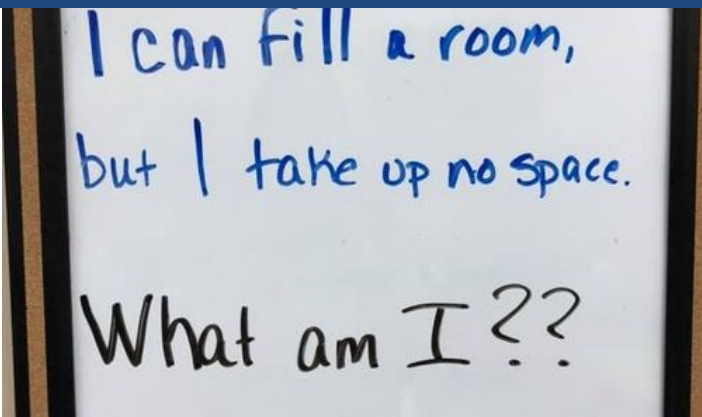 I can fill a room,
but I take up no space.
What am I??